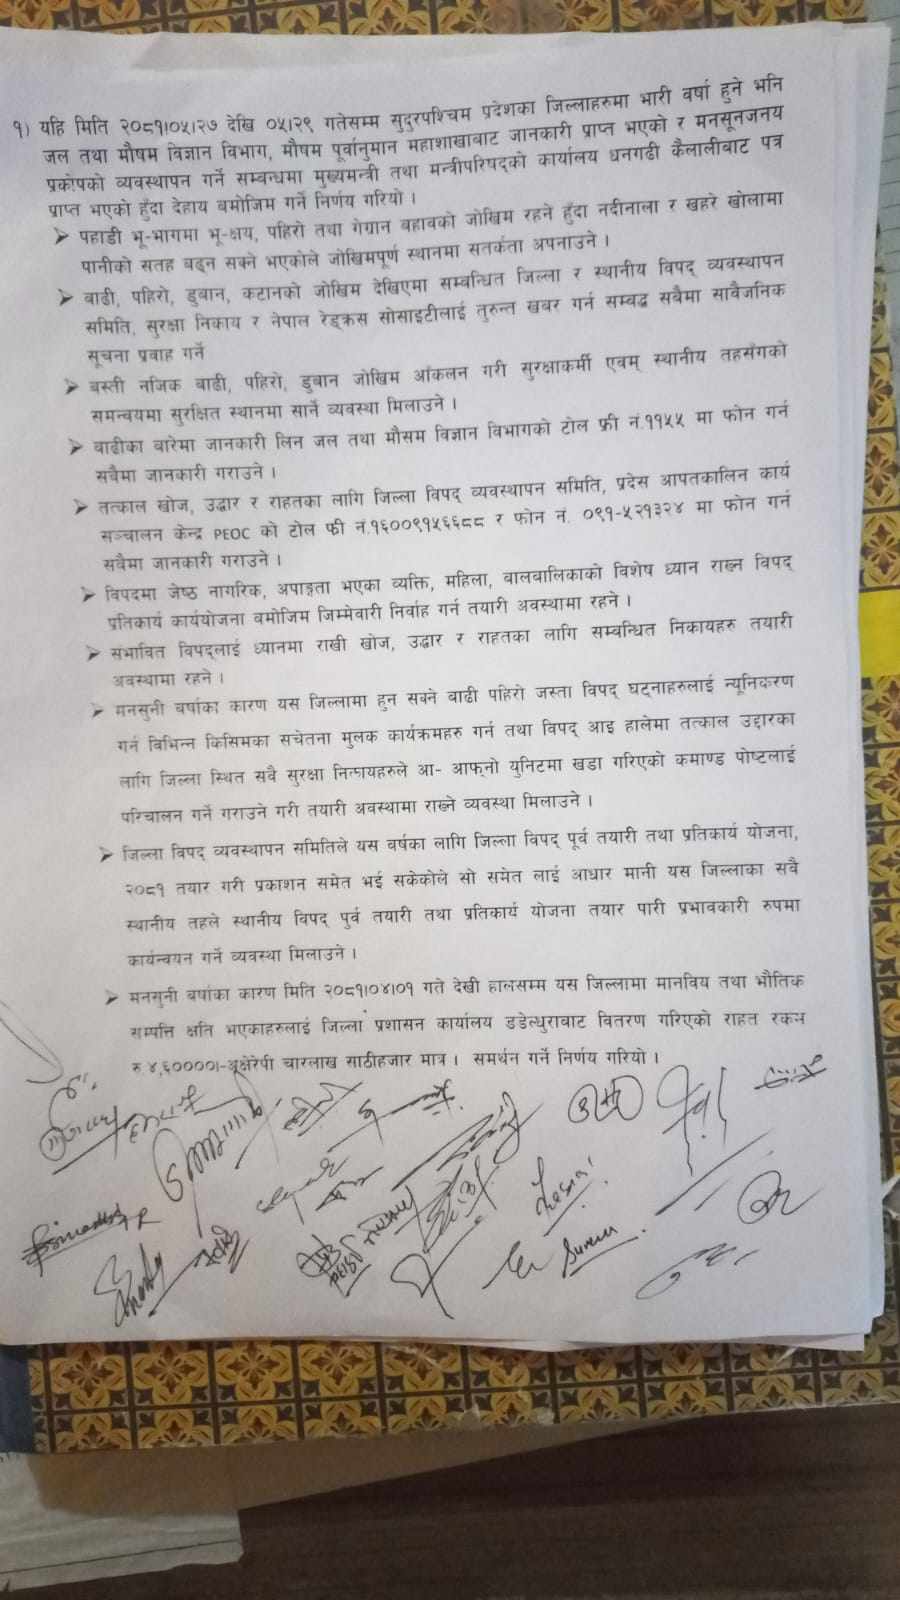 १) यहि मिति २०८१।०५।२७ देखि ०५।२९ गतेसम्म सुदुरपश्चिम प्रदेशका जिल्लाहरुमा भारी वर्षा हुने भनि
जल तथा मौषम विज्ञान विभाग, मौषम पूर्वानुमान महाशाखाबाट जानकारी प्राप्त भएको र मनसूनजनय
प्रकोपको व्यवस्थापन गर्ने सम्बन्धमा मुख्यमन्त्री तथा मन्त्रीपरिषद्को कार्यालय धनगढी कैलालीबाट पत्र
प्राप्त भएको हुँदा देहाय बमोजिम गर्ने निर्णय गरियो ।
➢ पहाडी भू-भागमा भू-क्षय, पहिरो तथा गेग्रान बहावको जोखिम रहने हुँदा नदीनाला र खहरे खोलामा
पानीको सतह बढ्न सक्ने भएकोले जोखिमपूर्ण स्थानमा सतर्कता अपनाउने ।
➢ बाढी, पहिरो, डुबान, कटानको जोखिम देखिएमा सम्बन्धित जिल्ला र स्थानीय विपद् व्यवस्थापन
समिति, सुरक्षा निकाय र नेपाल रेड्क्रस सोसाइटीलाई तुरुन्त खबर गर्न सम्बद्ध सबैमा सार्वजनिक
सूचना प्रवाह गर्ने
➢ बस्ती नजिक बाढी, पहिरो, डुबान जोखिम आँकलन गरी सुरक्षाकर्मी एवम् स्थानीय तहसँगको
समन्वयमा सुरक्षित स्थानमा सार्ने व्यवस्था मिलाउने ।
➢ बाढीका बारेमा जानकारी लिन जल तथा मौसम विज्ञान विभागको टोल फ्री नं.११५५ मा फोन गर्न
सबैमा जानकारी गराउने ।
➢ तत्काल खोज, उद्धार र राहतका लागि जिल्ला विपद् व्यवस्थापन समिति, प्रदेस आपतकालिन कार्य
सञ्चालन केन्द्र PEOC को टोल फ्री नं.१६००९१५६६८८ र फोन नं. ०९१-५२१३२४ मा फोन गर्न
सबैमा जानकारी गराउने ।
➢ विपदमा जेष्ठ नागरिक, अपाङ्गता भएका व्यक्ति, महिला, बालबालिकाको विशेष ध्यान राख्न विपद्
प्रतिकार्य कार्ययोजना बमोजिम जिम्मेवारी निर्वाह गर्न तयारी अवस्थामा रहने ।
➢ संभावित विपद्लाई ध्यानमा राखी खोज, उद्धार र राहतका लागि सम्बन्धित निकायहरु तयारी
अवस्थामा रहने ।
➢ मनसुनी बर्षाका कारण यस जिल्लामा हुन सक्ने बाढी पहिरो जस्ता विपद् घट्नाहरुलाई न्यूनिकरण
गर्न विभिन्न किसिमका सचेतना मुलक कार्यक्रमहरु गर्न तथा विपद् आइ हालेमा तत्काल उद्दारका
लागि जिल्ला स्थित सवै सुरक्षा निकायहरुले आ- आफ्नो युनिटमा खडा गरिएको कमाण्ड पोष्टलाई
परिचालन गर्ने गराउने गरी तयारी अवस्थामा राख्ने व्यवस्था मिलाउने ।
➢ जिल्ला विपद् व्यवस्थापन समितिले यस वर्षका लागि जिल्ला विपद् पूर्व तयारी तथा प्रतिकार्य योजना,
२०८१ तयार गरी प्रकाशन समेत भई सकेकोले सो समेत लाई आधार मानी यस जिल्लाका सवै
स्थानीय तहले स्थानीय विपद् पुर्व तयारी तथा प्रतिकार्य योजना तयार पारी प्रभावकारी रुपमा
कार्यन्वयन गर्ने व्यवस्था मिलाउने ।
➢ मनसुनी बर्षाका कारण मिति २०८१।०४।०१ गते देखी हालसम्म यस जिल्लामा मानविय तथा भौतिक
सम्पत्ति क्षति भएकाहरुलाई जिल्ला प्रशासन कार्यालय डडेल्धुराबाट वितरण गरिएको राहत रकम
रु.४,६००००।-अक्षेरेपी चारलाख साठीहजार मात्र । समर्थन गर्ने निर्णय गरियो ।